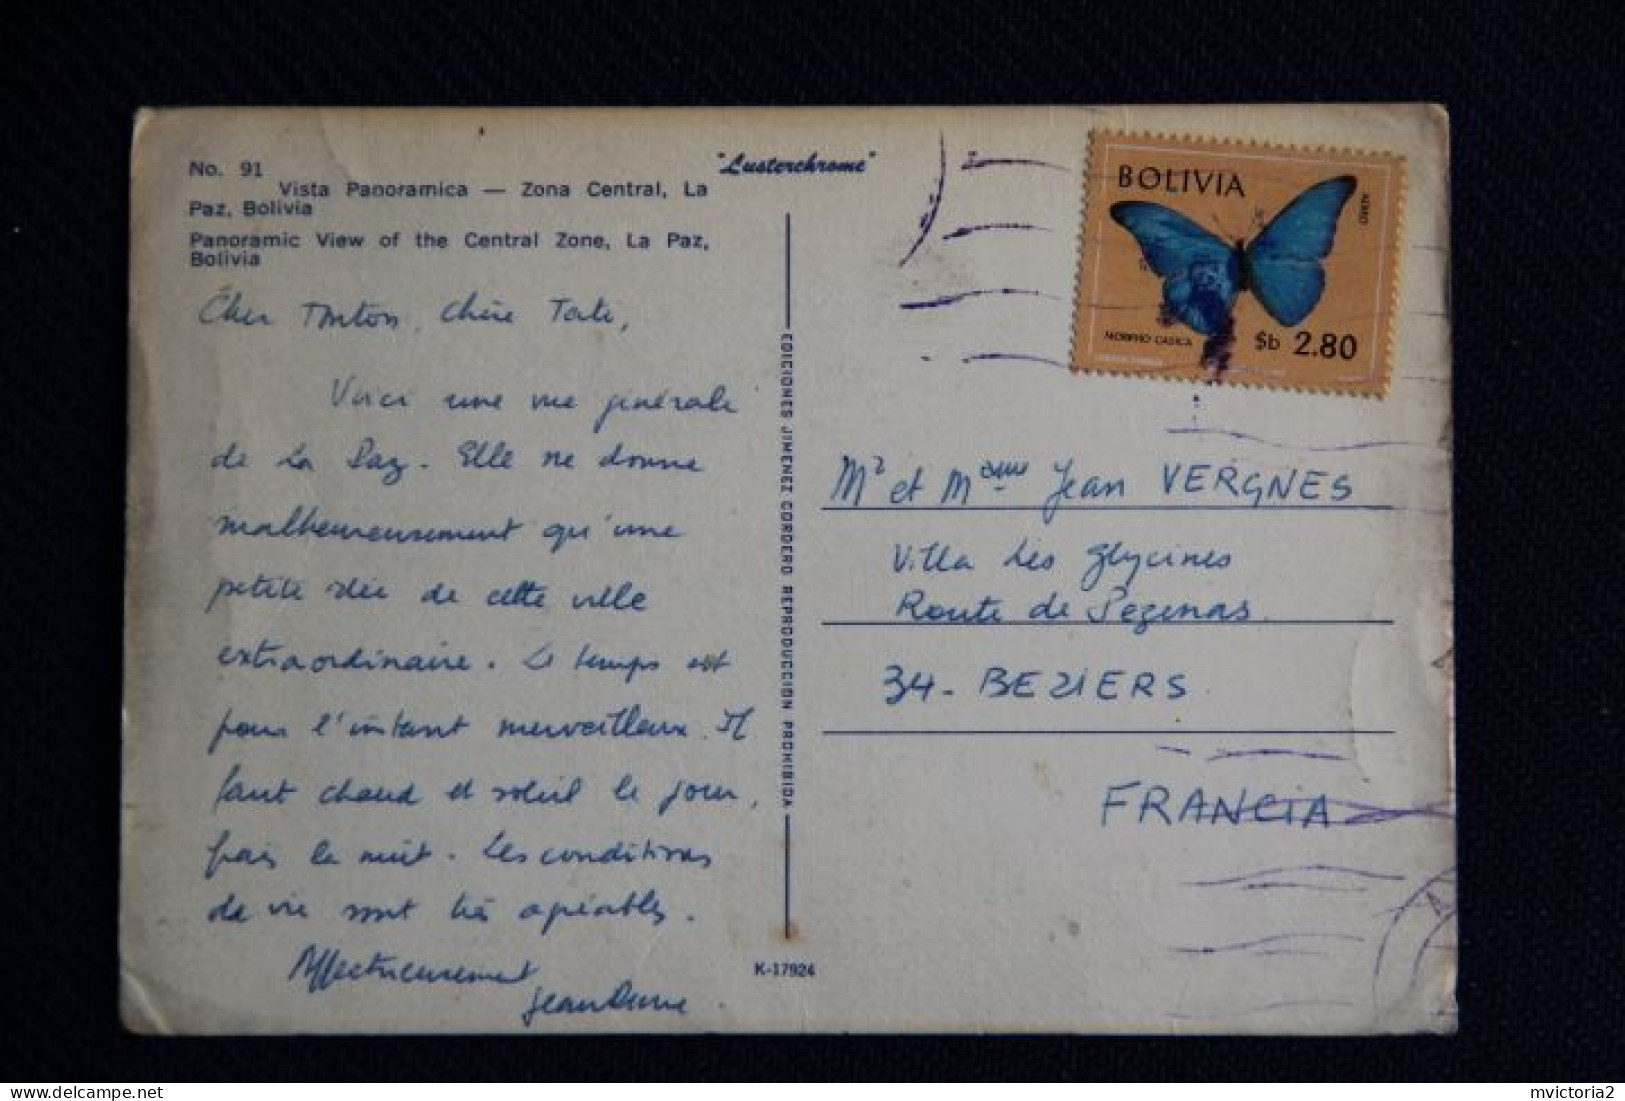 No. 91
Vista Panoramica — Zona Central, La
Paz, Bolivia
Panoramic View of the Central Zone, La Paz,
Bolivia
"Lusterchrome"
Cher Tonton, chère Tati,
Voici une vue générale
de La Paz. Elle ne donne
malheureusement qu'une
petite idée de cette ville
extraordinaire. Le temps est
pour l'instant merveilleux. Il
fait chaud et soleil le jour,
frais la nuit. Les conditions
de vie sont très agréables.
Affectueusement
EDICIONES JIMENEZ CORDERO REPRODUCCION PROHIBIDA
K-17924
BOLIVIA
AEREO
MORPHO CASICA
$b 2.80
Mr et Madame Jean VERGNES
Villa Les Glycines
Route de Pezenas
34 - BEZIERS
FRANCIA
delcampe.net
mvictoria2